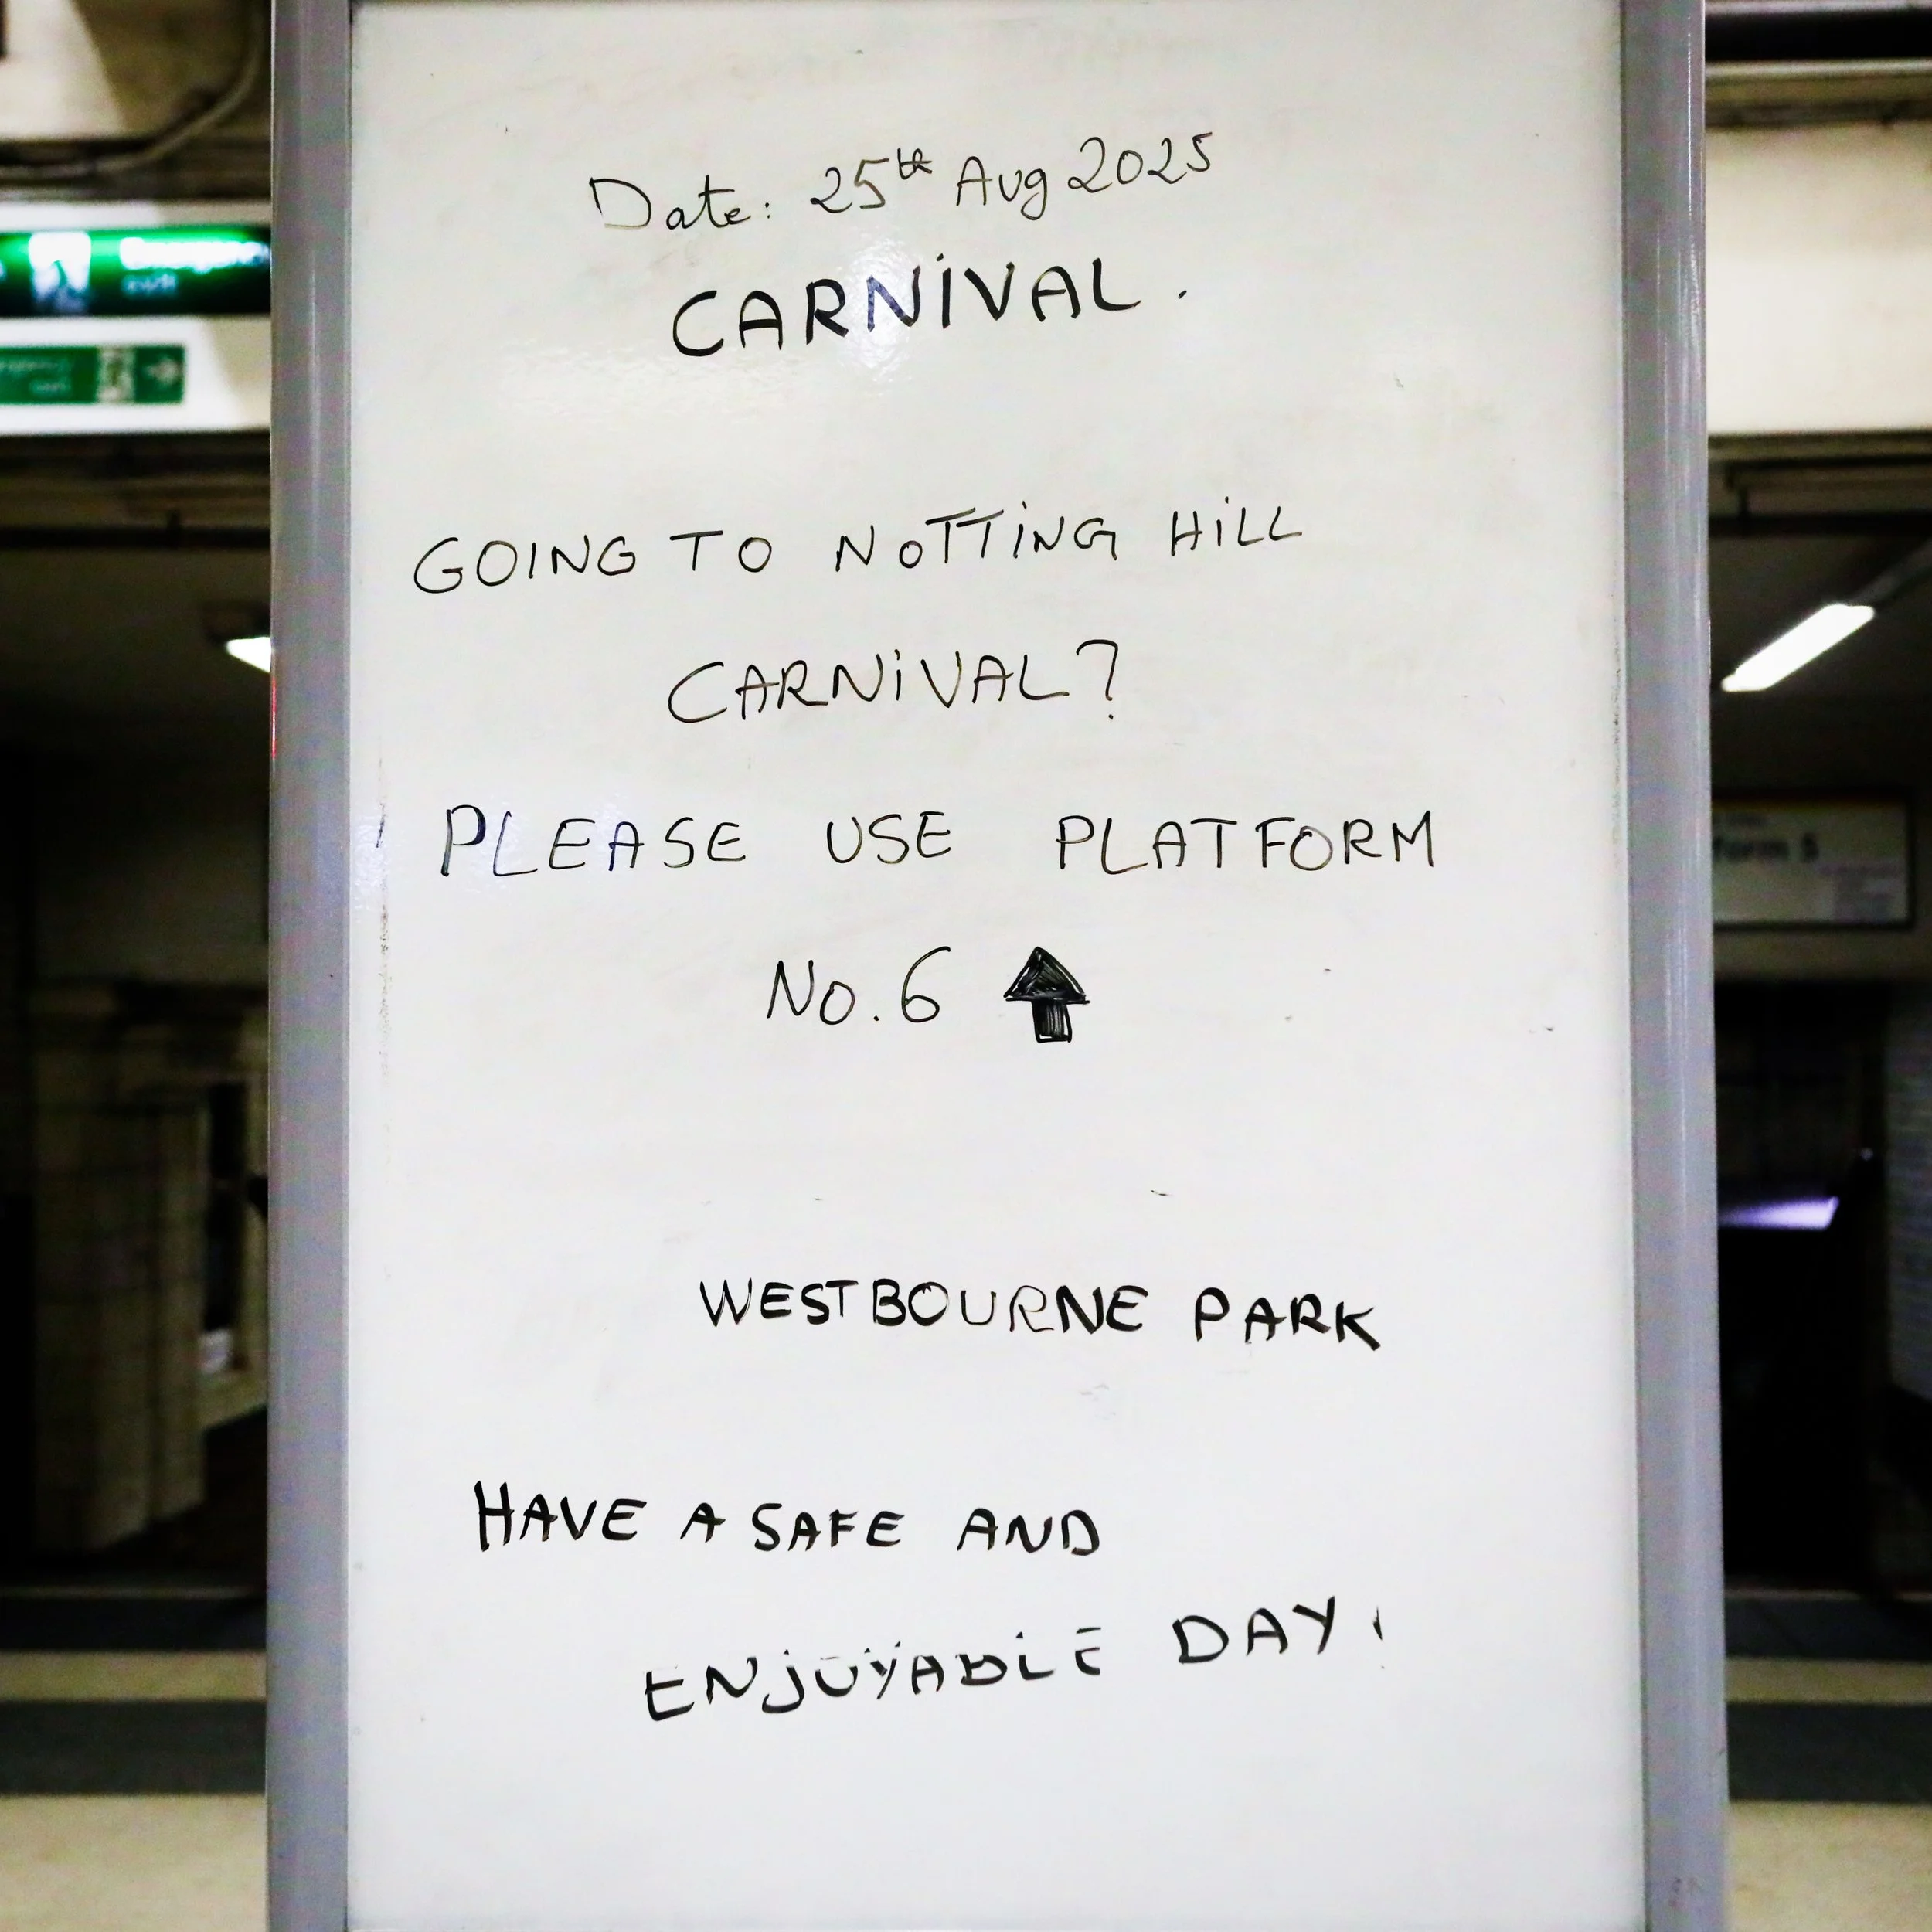 Date: 25th Aug 2025
CARNIVAL.
GOING TO NOTTING HILL
CARNIVAL?
PLEASE USE PLATFORM
No. 6
WESTBOURNE PARK
HAVE A SAFE AND
ENJOYABLE DAY!
Emergency
exit
form 5